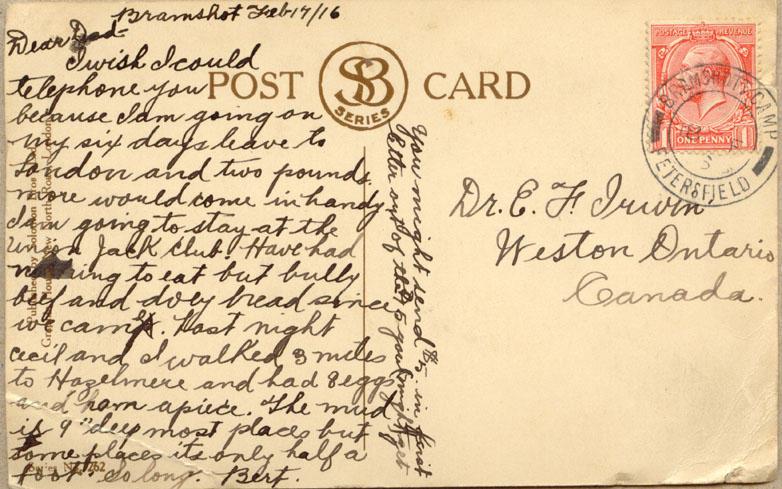 Bramshot Feb 17/16
Dear Dad-
I wish I could
telephone you
because I am going on
my six days leave to
London and two pounds
more would come in handy
I am going to stay at the
Union Jack Club. Have had
nothing to eat but bully
beef and dry bread since
we came. Last night
Cecil and I walked 3 miles
to Hazelmere and had 8 eggs
and ham apiece. The mud
is 9" deep most places but
some places its only half a
foot. So long. Bert.
You might send $5. in first
letter out of that you might get
POST CARD
SB
SERIES
POSTAGE REVENUE
ONE PENNY
1 1
BRAMSHOTT CAMP
PETERSFIELD
Dr. E. F. Irwin
Weston Ontario
Canada.
Series No. 262